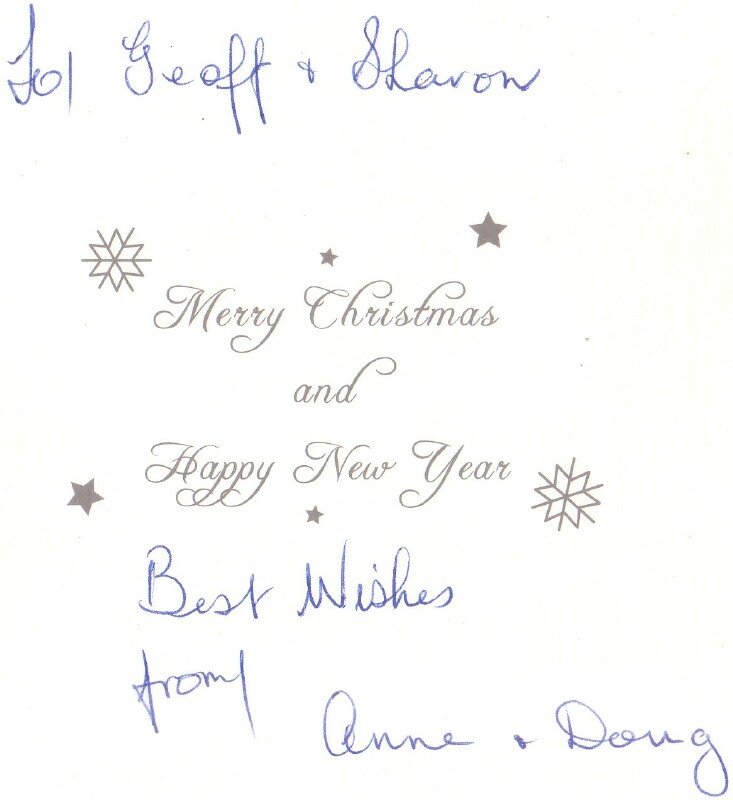 To/ Geoff + Sharon
Merry Christmas
and
Happy New Year
Best Wishes
from/
Anne + Doug